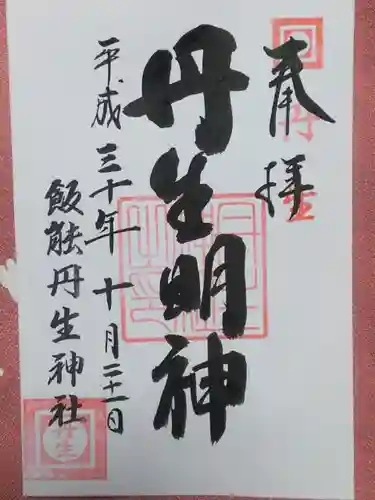 奉拝
丹生明神
平成三十年十月二十一日
飯能丹生神社
丹生